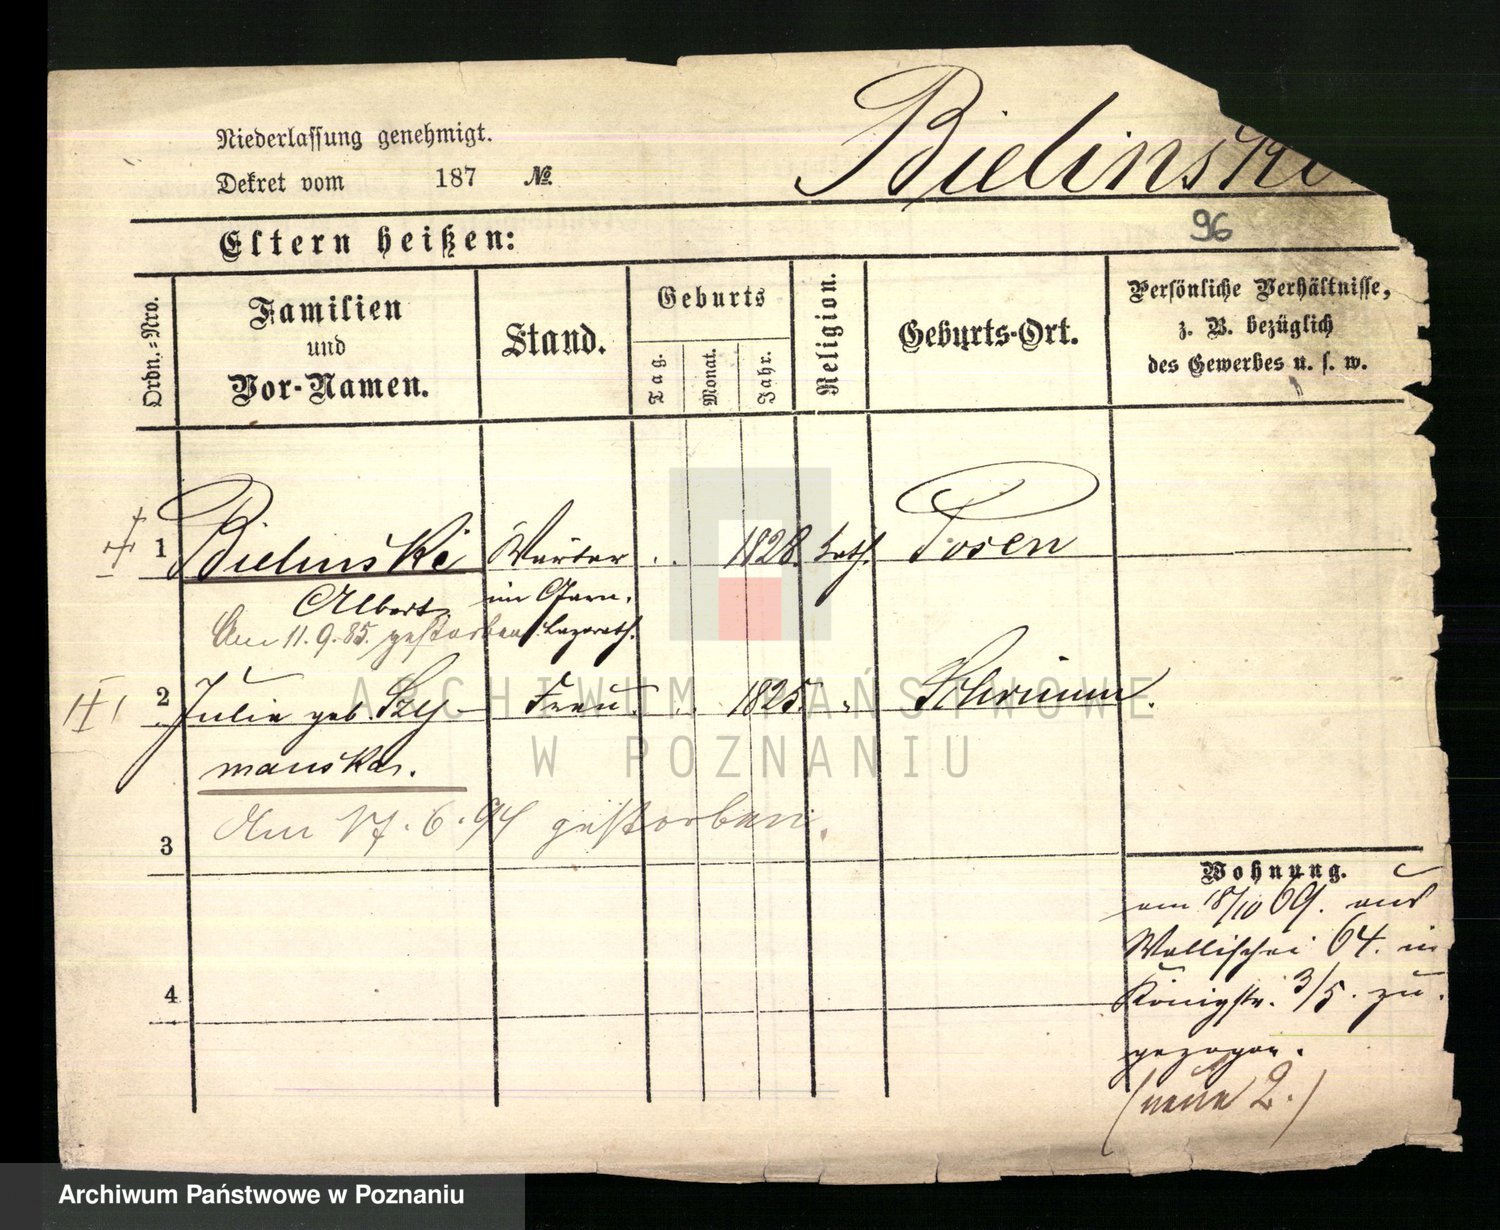 Niederlassung genehmigt.
Dekret vom 187 №.
Bielinski
96
Eltern heißen:
Ordn.=Nro.
Familien
und
Vor-Namen.
Stand.
Geburts
Tag.
Monat.
Jahr.
Religion.
Geburts-Ort.
Persönliche Verhältnisse,
z. B. bezüglich
des Gewerbes u. s. w.
1 Bielinski Wärter 1828. kath. Posen
Albert im Garn.
Am 11.9.85. gestorben Lazareth.
2 Julie geb. Szy- Frau 1825. " Schrimm.
manska.
Am 17.6.94 gestorben.
3
Wohnung.
am 18/10 69. aus
Wallischei 64. in
Königstr. 3/5. zu
gezogen.
(neue 2.)
4
ARCHIWUM PAŃSTWOWE
W POZNANIU
Archiwum Państwowe w Poznaniu